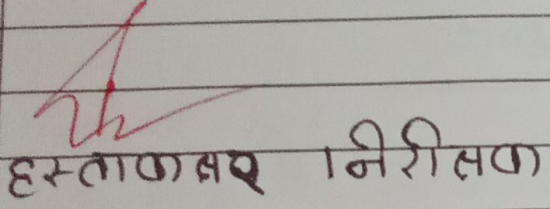 हस्ताकक्षर निरीक्षक